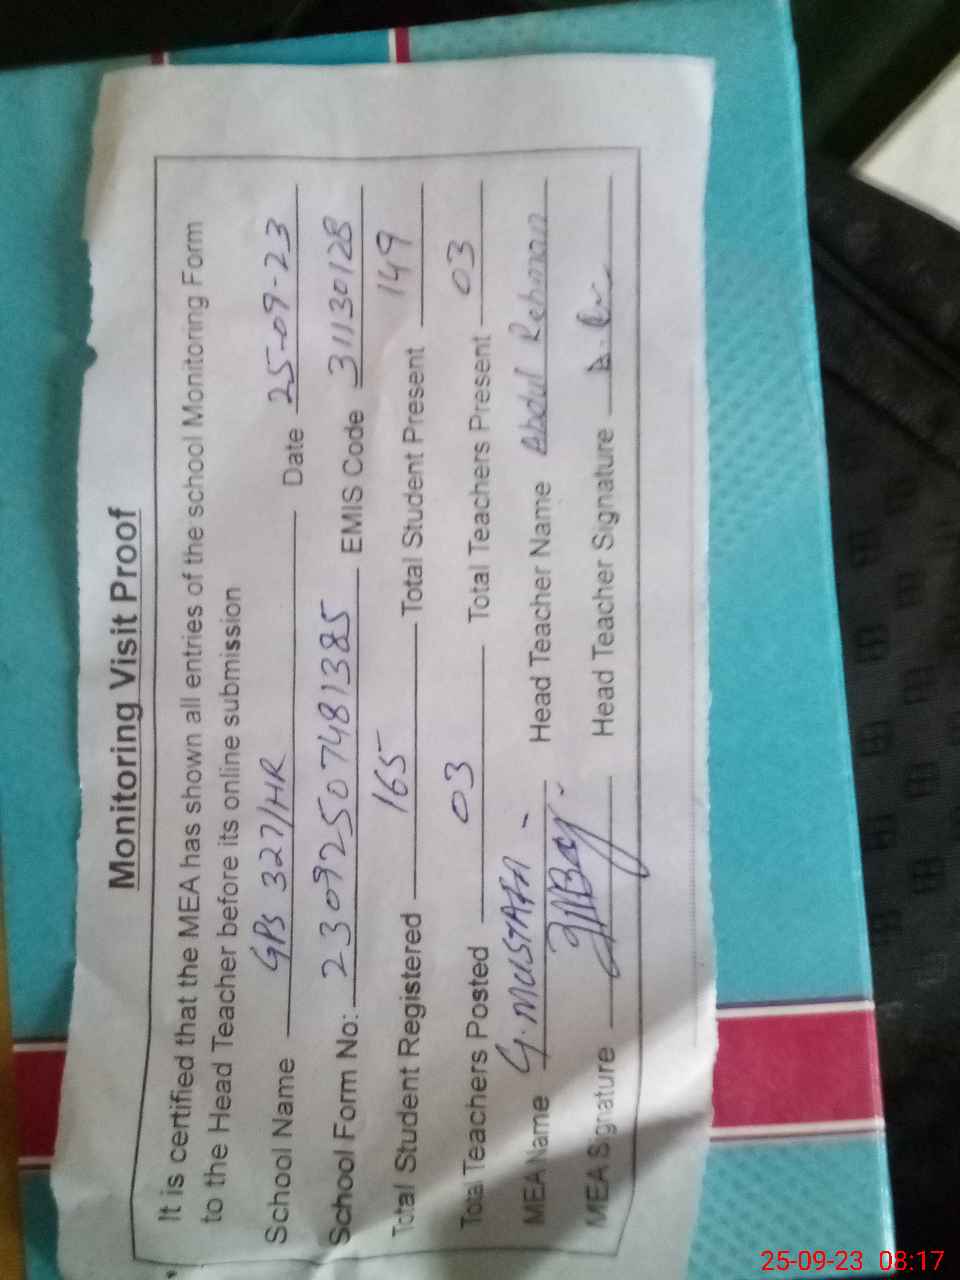 Monitoring Visit Proof
It is certified that the MEA has shown all entries of the school Monitoring Form
to the Head Teacher before its online submission
School Name GPS 327/HR Date 25-09-23
School Form No: 23092507481385 EMIS Code 31130128
Total Student Registered 165 Total Student Present 149
Total Teachers Posted 03 Total Teachers Present 03
MEA Name G. MUSTAFA Head Teacher Name Abdul Rehman
MEA Signature Head Teacher Signature
25-09-23 08:17